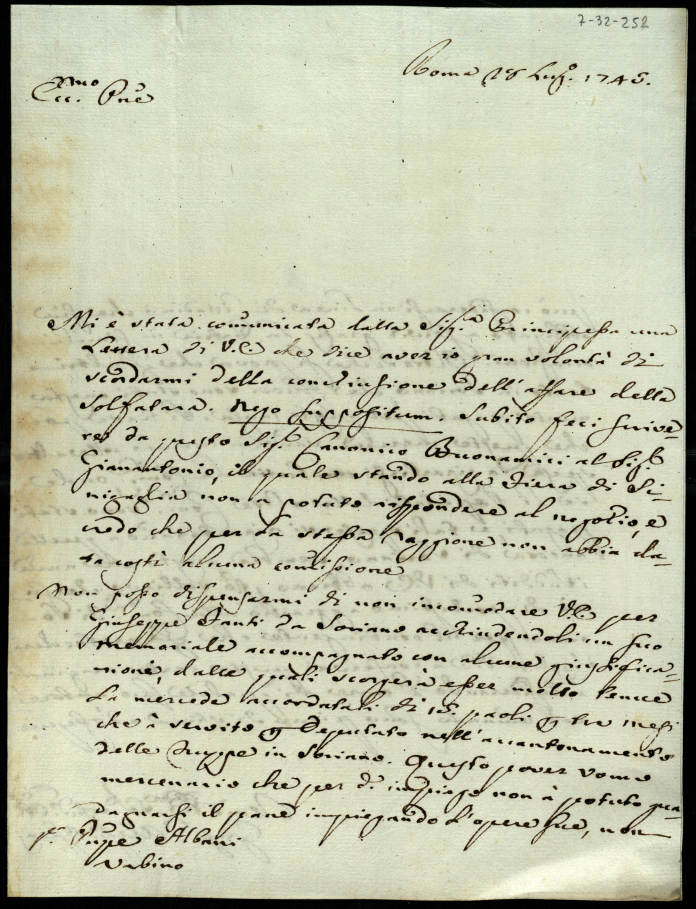 7-32-252
Roma 28 Lug.o 1745.
Ecc.mo Pne
Mi è stata comunicata dalla Sig.a Principessa una
Lettera di V.E. che dice aver io gran volontà di
scordarmi della conclusione dell'affare della
Solfatara. Nego suppositum. Subito feci scrive-
re da questo Sig.r Canonico Buonamici al Sig.r
Gianantonio, il quale stando alla Fiera di Si-
nigaglia non a potuto rispondere al negotio, e
credo che per la stessa raggione non abbia da-
ta costì alcuna comissione
Non posso dispensarmi di non incomodare V.E. per
Giuseppe Santi da Soriano acchiudendoli un suo
memoriale accompagnato con alcune giustifica-
zione, dalle quali scorgerà esser molto tenue
La mercede accordatali di 15 paoli p tre mesi
che à servito p Deputato nell'accantonamento
delle Truppe in Soriano. Questo pover uomo
mercenario che per d.o impiego non à potuto gua-
dagnarsi il pane impiegando l'opere sue, non
Pnpe Albani
Urbino